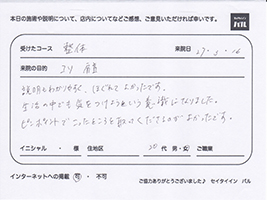 本日の施術や説明について、店内についてなどご感想、ご意見いただければ幸いです。
バル
受けたコース 整体 来院日 27・3・16
来院の目的 コリ 肩
説明もわかりやすく、ほぐれてよかったです。
生活の中でも気をつけようという意識になりました。
ピンポイントでこったところを取ってくださるのがよかったです。
イニシャル ・ 様 住地区 20代 男・女 ご職業
インターネットへの掲載 可・不可
ご協力ありがとうございました♪ セイタイイン バル